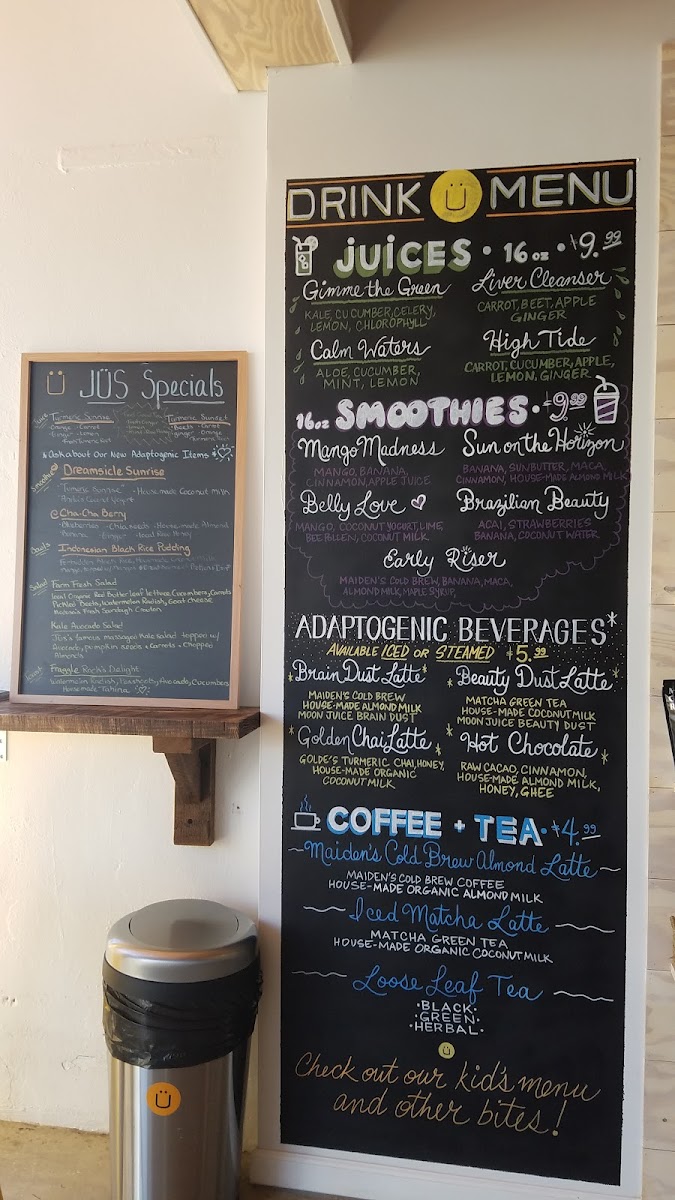 DRINK Ü MENU
JUICES • 16 oz • $9.99
Gimme the Green
KALE, CUCUMBER, CELERY,
LEMON, CHLOROPHYLL
Liver Cleanser
CARROT, BEET, APPLE
GINGER
Calm Waters
ALOE, CUCUMBER,
MINT, LEMON
High Tide
CARROT, CUCUMBER, APPLE,
LEMON, GINGER
16oz SMOOTHIES • $9.99
Mango Madness
MANGO, BANANA,
CINNAMON, APPLE JUICE
Sun on the Horizon
BANANA, SUNBUTTER, MACA,
CINNAMON, HOUSE-MADE ALMOND MILK
Belly Love
MANGO, COCONUT YOGURT, LIME,
BEE POLLEN, COCONUT MILK
Brazilian Beauty
ACAI, STRAWBERRIES
BANANA, COCONUT WATER
Early Riser
MAIDEN'S COLD BREW, BANANA, MACA,
ALMOND MILK, MAPLE SYRUP,
ADAPTOGENIC BEVERAGES*
AVAILABLE ICED OR STEAMED $5.99
Brain Dust Latte
MAIDEN'S COLD BREW
HOUSE-MADE ALMOND MILK
MOON JUICE BRAIN DUST
Beauty Dust Latte
MATCHA GREEN TEA
HOUSE-MADE COCONUT MILK
MOON JUICE BEAUTY DUST
Golden Chai Latte
GOLDE'S TURMERIC CHAI, HONEY,
HOUSE-MADE ORGANIC
COCONUT MILK
Hot Chocolate
RAW CACAO, CINNAMON,
HOUSE-MADE ALMOND MILK,
HONEY, GHEE
COFFEE + TEA • $4.99
Maiden's Cold Brew Almond Latte
MAIDEN'S COLD BREW COFFEE
HOUSE-MADE ORGANIC ALMOND MILK
Iced Matcha Latte
MATCHA GREEN TEA
HOUSE-MADE ORGANIC COCONUT MILK
Loose Leaf Tea
•BLACK•
•GREEN•
•HERBAL•
Ü
Check out our kid's menu
and other bites!
Ü JÜS Specials
Juice
Turmeric Sunrise
-Orange -Carrot
-Ginger -Lemon
-Fresh Turmeric Root
Turmeric Sunset
-Beets -Carrot
-ginger -Orange
* Ask about Our New Adaptogenic Items *
Smoothies
Dreamsicle Sunrise
"Turmeric Sunrise" -House made Coconut milk
@ Cha-Cha Berry
-Blueberries -Chia seeds -House-made Almond
-Banana -Ginger
Bowls
Indonesian Black Rice Pudding
Salad
Farm Fresh Salad
local Organic Red Butter leaf lettuce, Cucumbers, Carrots
Pickled Beets, Watermelon Radish, Goat cheese
Fresh Sourdough Crouton
Kale Avocado Salad
Jüs's famous massaged kale salad topped w/
Avocado, pumpkin seeds + Carrots + Chopped
Almonds
Toast
Fraggle Rock's Delight
Watermelon Radish, Avocado, Cucumbers
Housemade Tahina
Ü